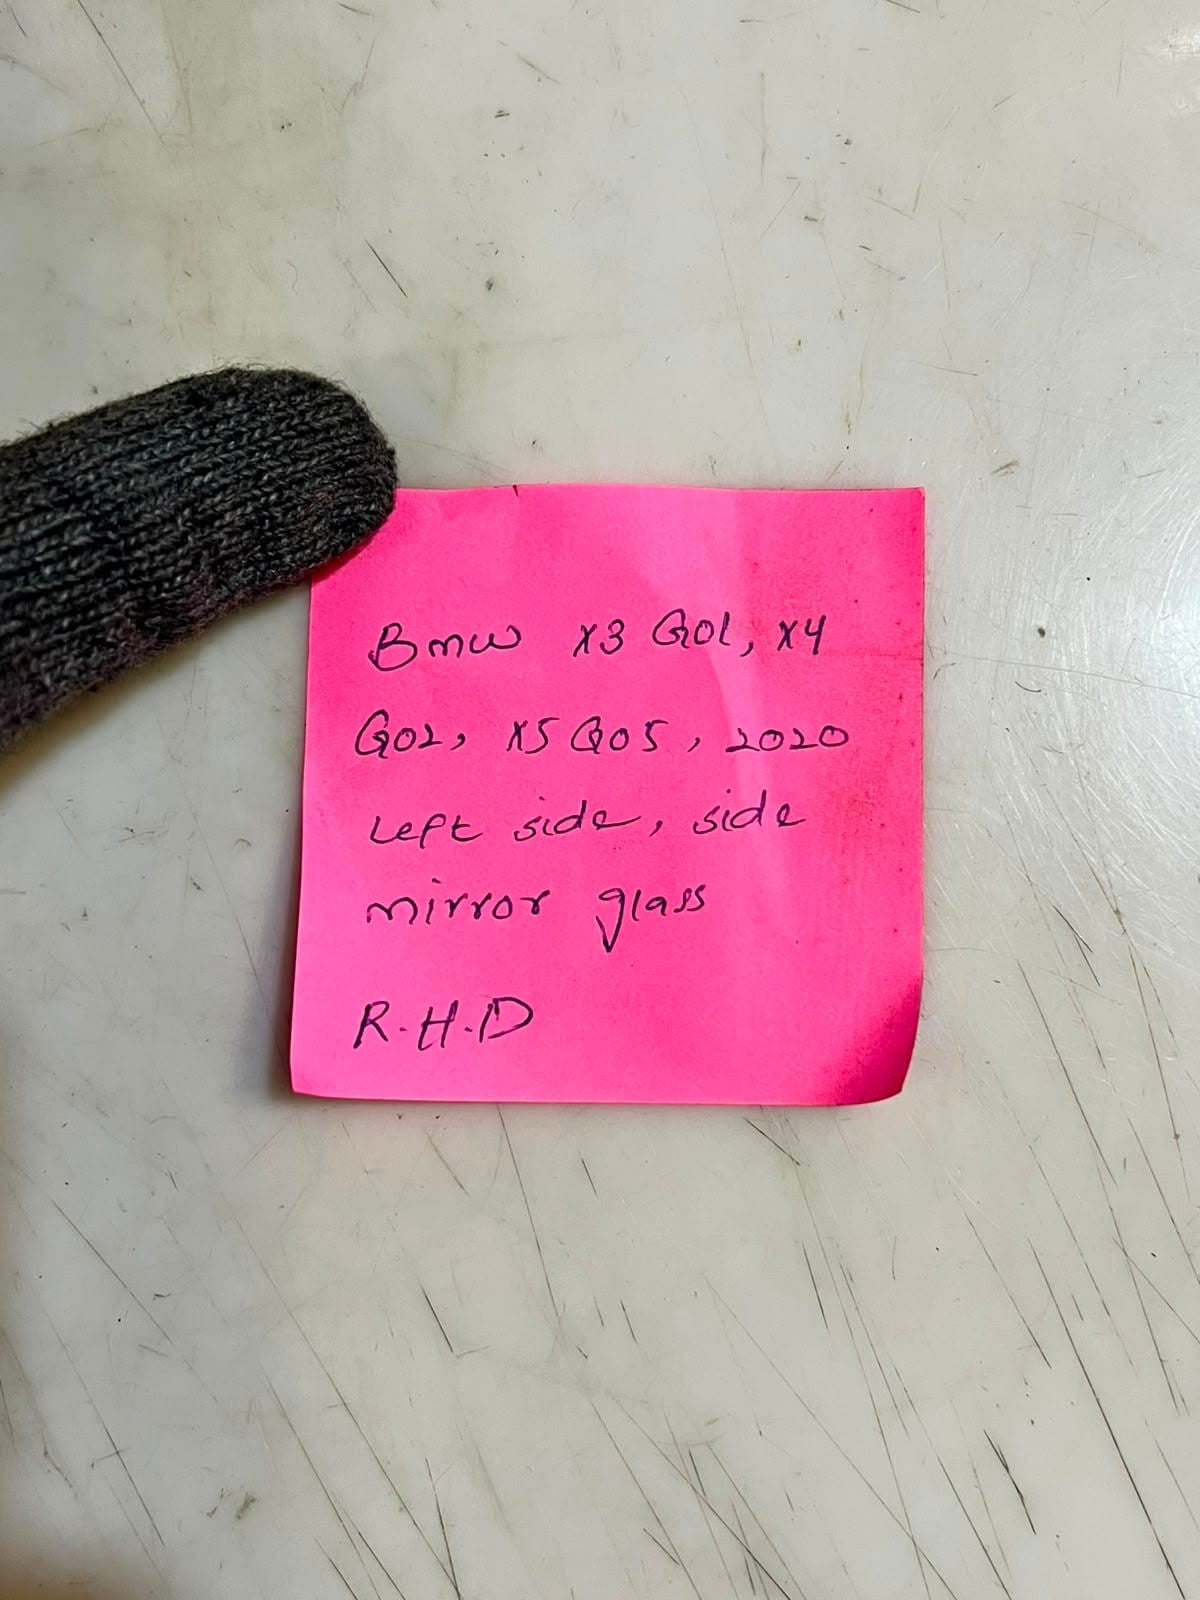 Bmw X3 G01, X4
G02, X5 G05, 2020
Left side, side
mirror glass
R.H.D